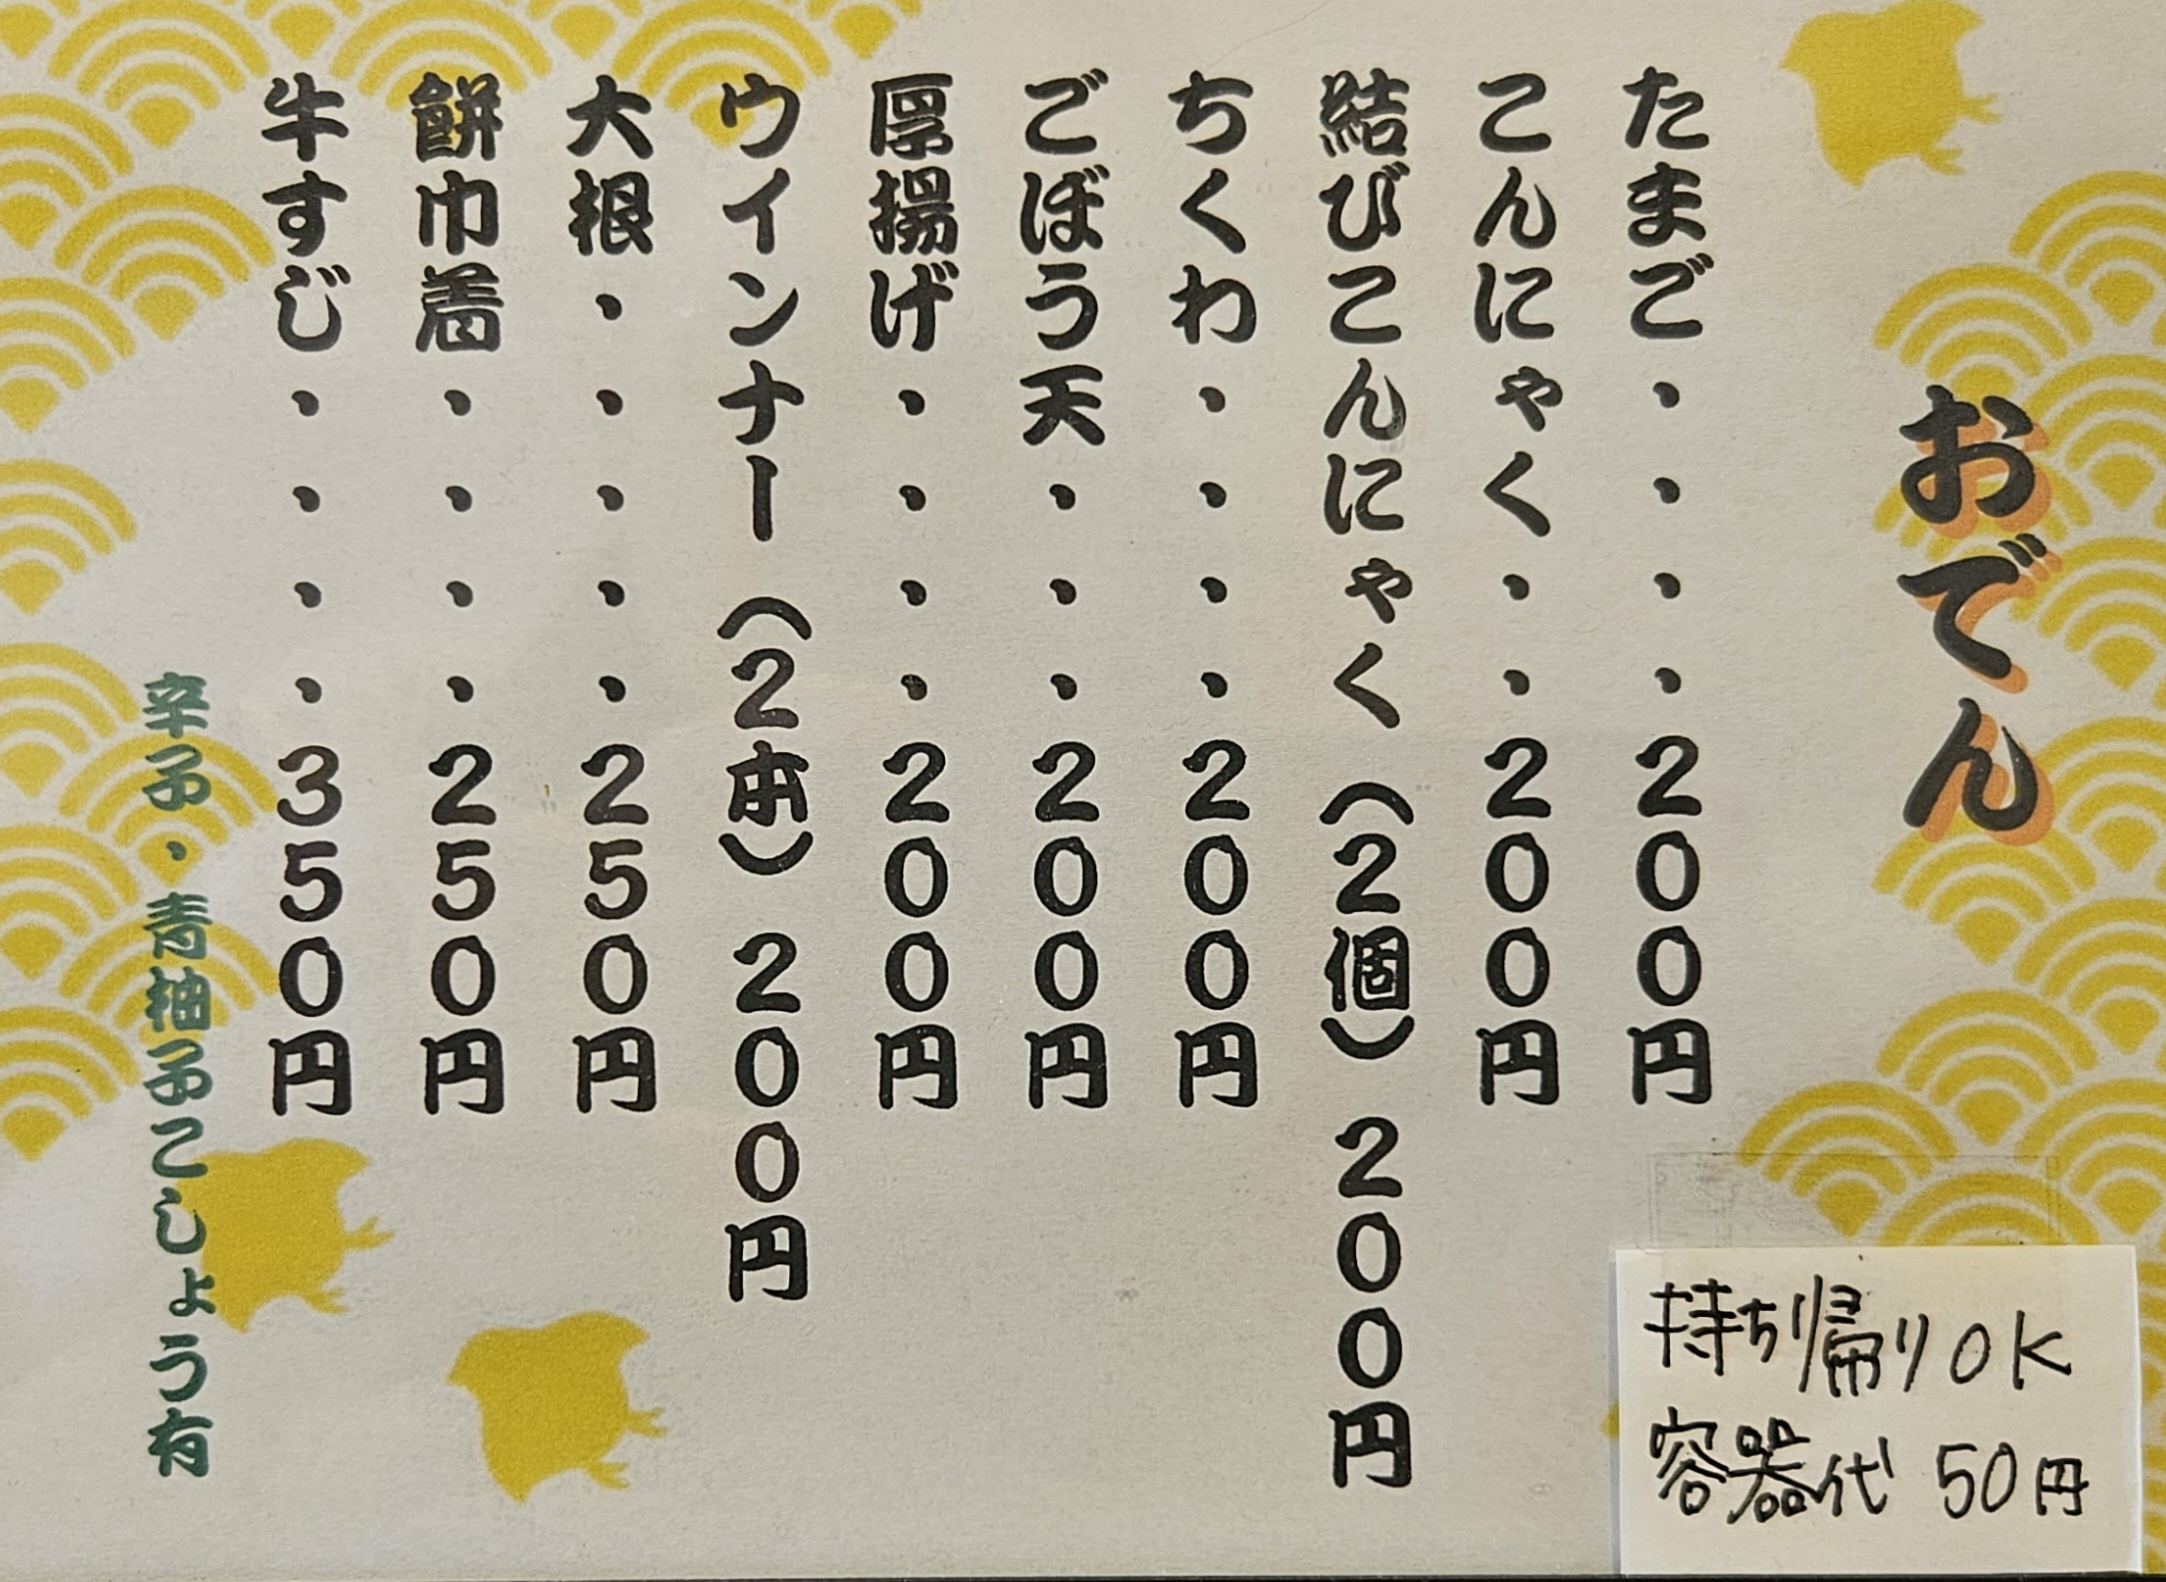 おでん
たまご・・・・200円
こんにゃく・・200円
結びこんにゃく(2個)200円
ちくわ・・・・200円
ごぼう天・・・200円
厚揚げ・・・・200円
ウインナー(2本)200円
大根・・・・・250円
餅巾着・・・・250円
牛すじ・・・・350円
辛子・青柚子こしょう有
持ち帰りOK
容器代 50円